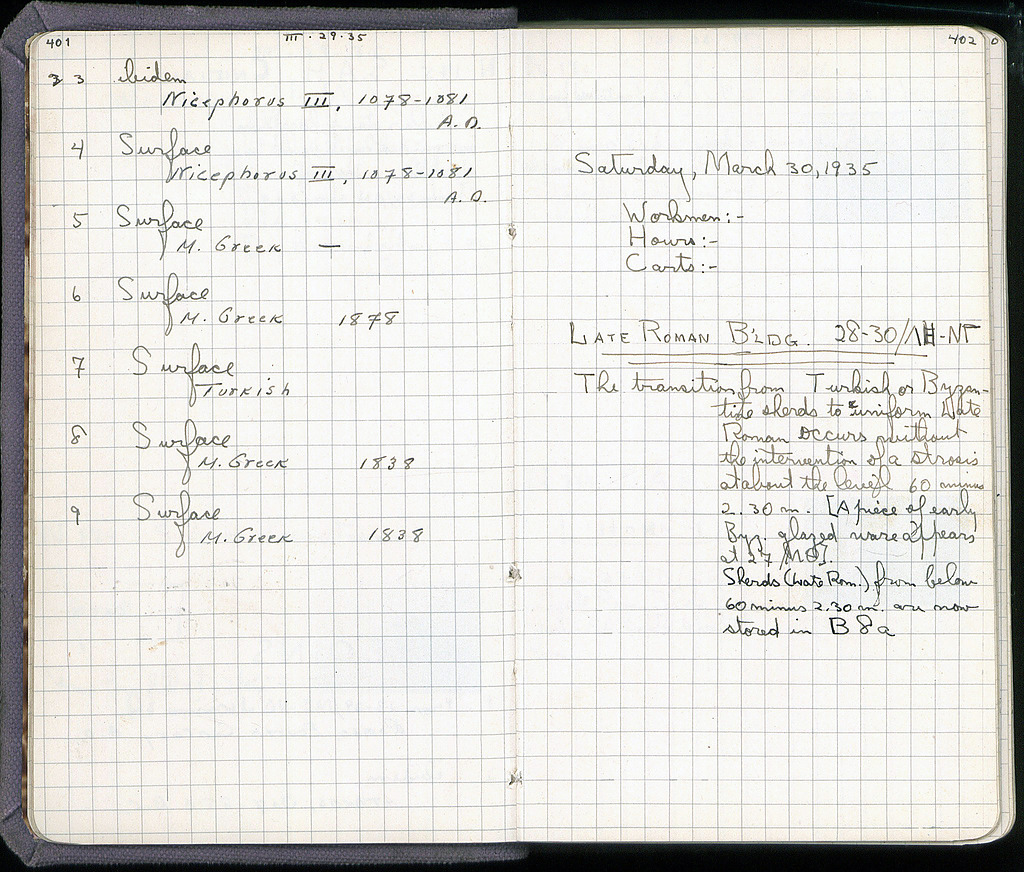 401
III · 29 · 35
3 ibidem
Nicephorus III, 1078-1081
A.D.
4 Surface
Nicephorus III, 1078-1081
A.D.
5 Surface
M. Greek —
6 Surface
M. Greek 1878
7 Surface
Turkish
8 Surface
M. Greek 1838
9 Surface
M. Greek 1838
402
Saturday, March 30, 1935
Workmen:-
Hours:-
Carts:-
LATE ROMAN B'LDG. 28-30/ΛΗ-ΝΓ
The transition from Turkish or Byzan-
tine sherds to uniform Late
Roman occurs without
the intervention of a strosis
at about the level 60 minus
2.30 m. [A piece of early
Byz. glazed ware appears
at 27/ΜΘ].
Sherds (Late Rom.) from below
60 minus 2.30 m. are now
stored in B 8 a